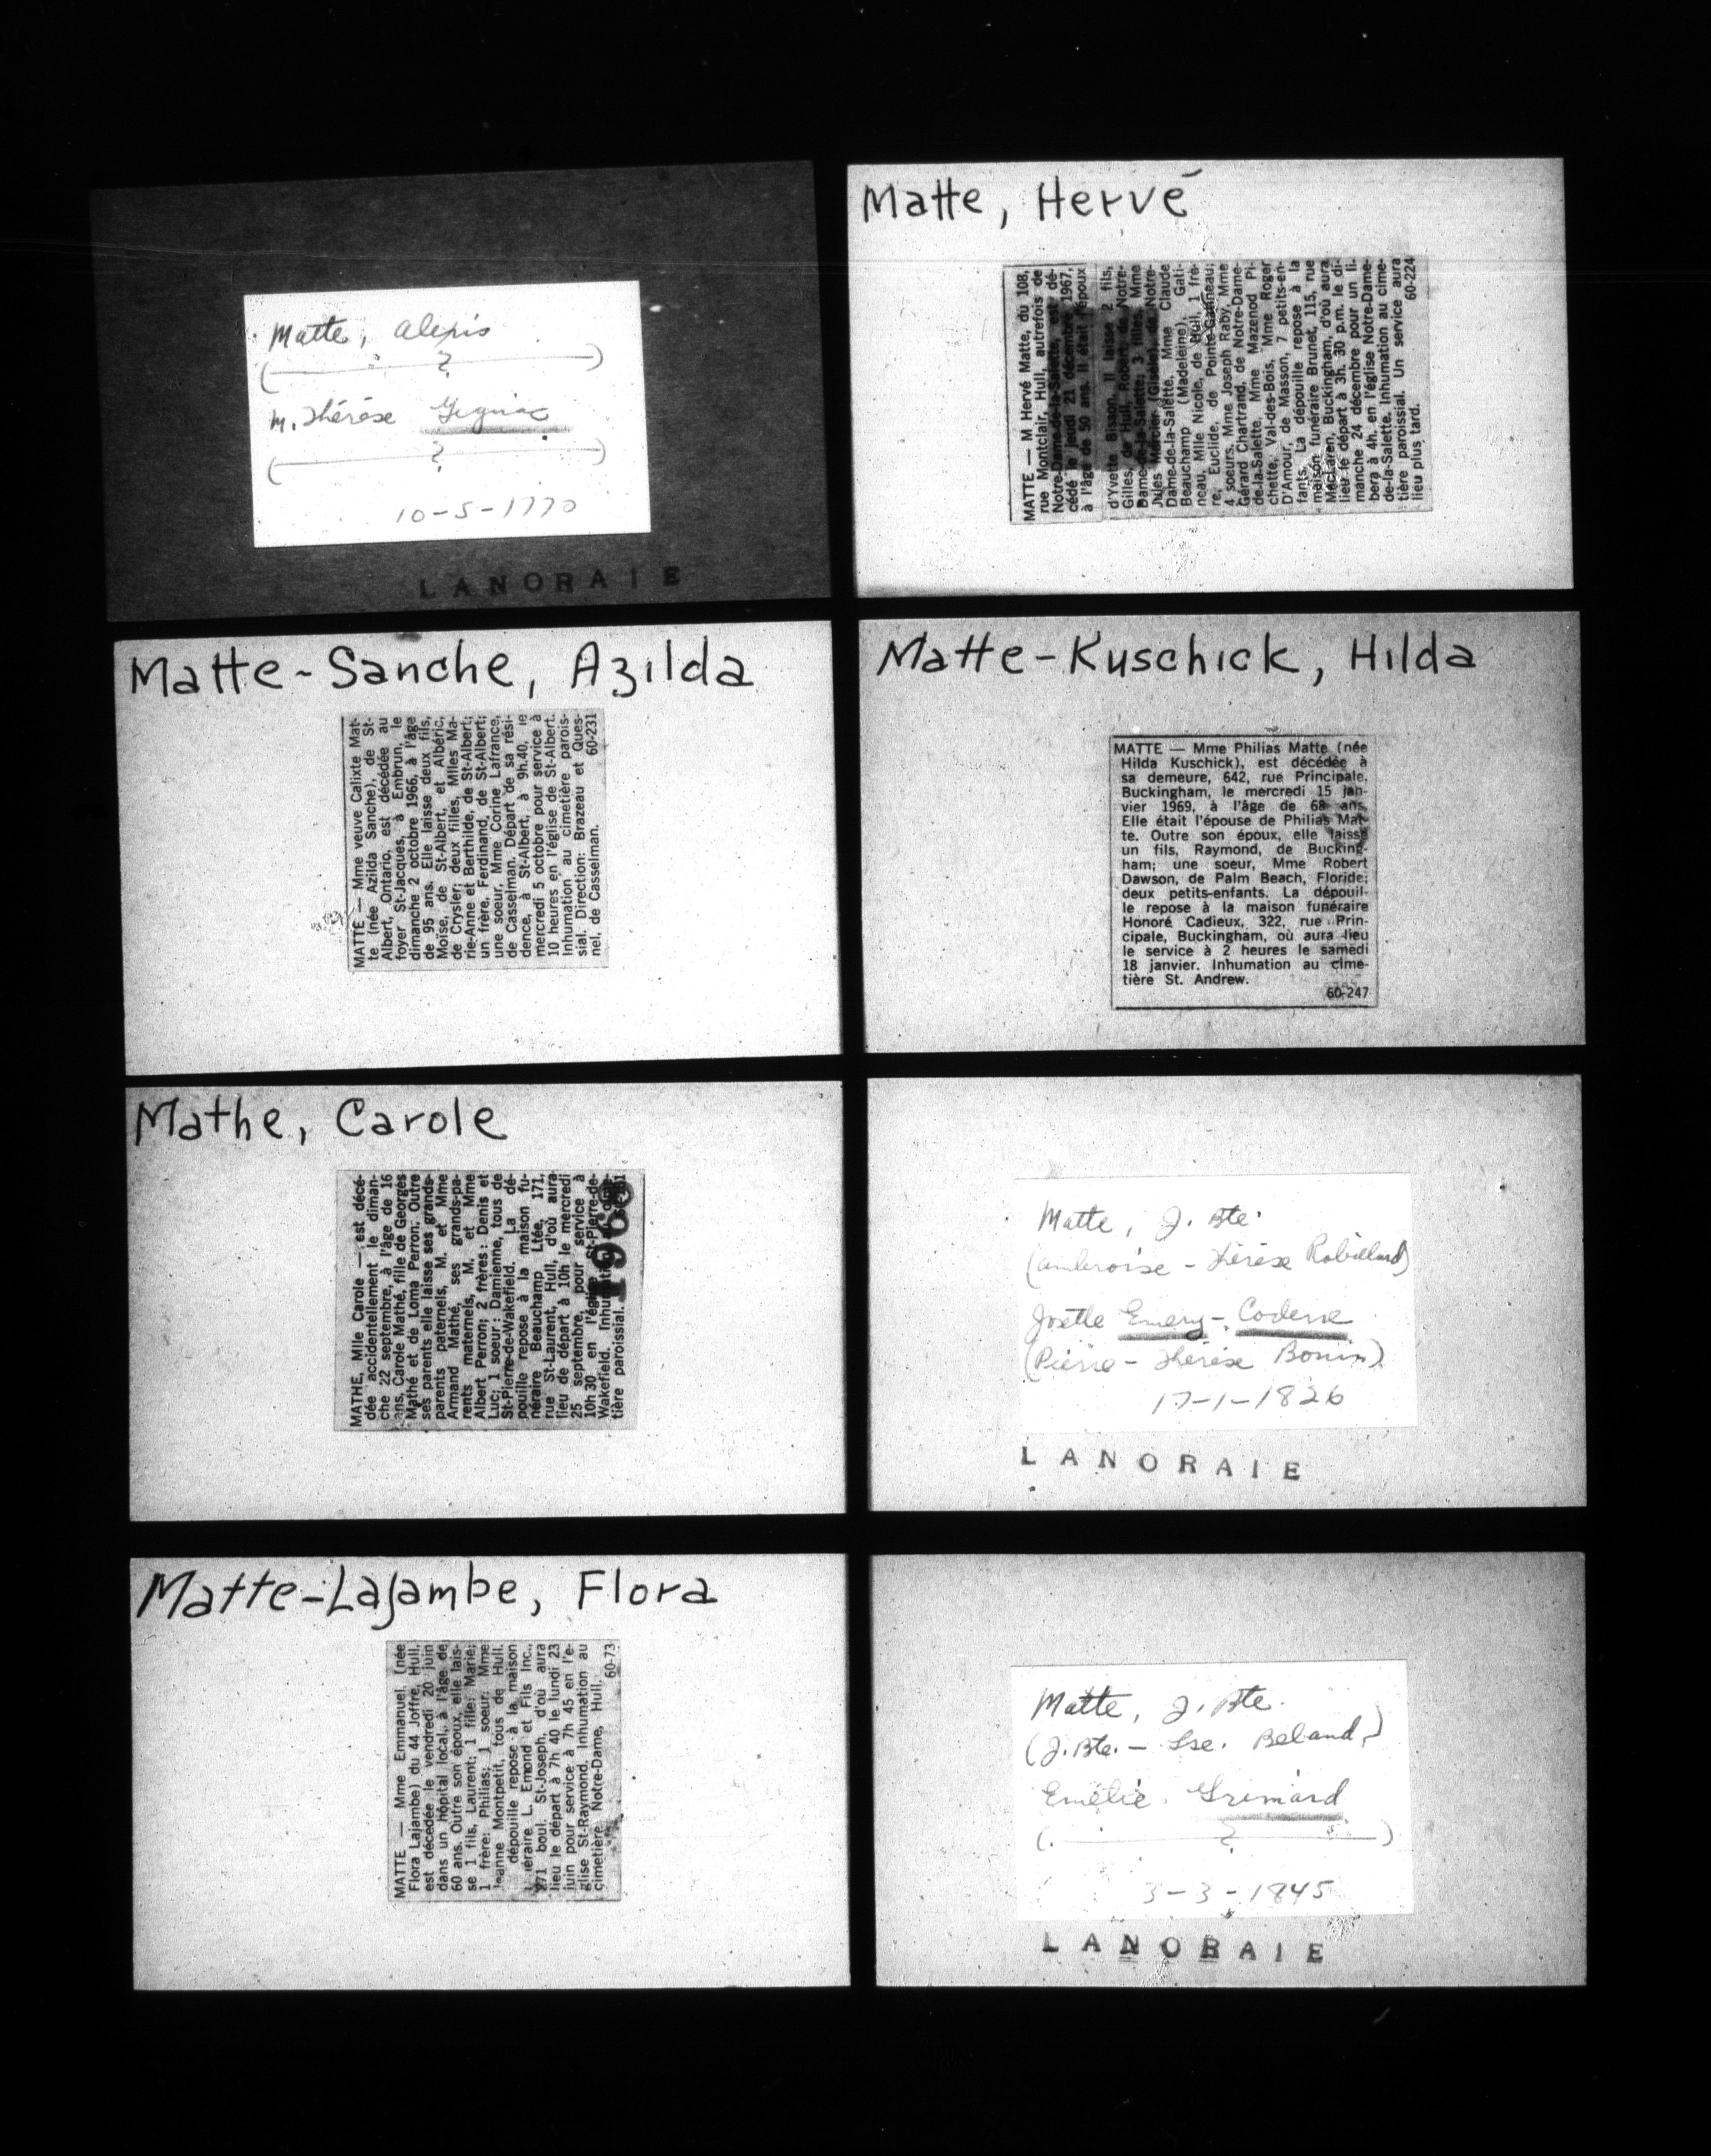 Matte, Alexis
( ? )
M. Thérèse Gignac
( ? )
10-5-1770
LANORAIE
Matte-Sanche, Azilda
MATTE — Mme veuve Calixte Mat-
te (née Azilda Sanche), de St-
Albert, Ontario, est décédée au
foyer St-Jacques, à Embrun, le
dimanche 2 octobre 1966, à l'âge
de 95 ans. Elle laisse deux fils,
Moïse, de St-Albert, et Albéric,
de Crysler; deux filles, Mlles Ma-
rie-Anne et Berthilde, de St-Albert;
un frère, Ferdinand, de St-Albert;
une soeur, Mme Corine Lafrance,
de Casselman. Départ de sa rési-
dence, à St-Albert, à 9h.40, le
mercredi 5 octobre pour service à
10 heures en l'église de St-Albert.
Inhumation au cimetière parois-
sial. Direction: Brazeau et Ques-
nel, de Casselman. 60-231
Mathe, Carole
MATHE, Mlle Carole — est décé-
dée accidentellement le diman-
che 22 septembre, à l'âge de 16
ans, Carole Mathé, fille de Georges
Mathé et de Loma Perron. Outre
ses parents elle laisse ses grands-
parents paternels, M. et Mme
Armand Mathé, ses grands-pa-
rents maternels, M. et Mme
Albert Perron; 2 frères: Denis et
Luc; 1 soeur: Damienne, tous de
St-Pierre-de-Wakefield. La dé-
pouille repose à la maison fu-
néraire Beauchamp Ltée, 171,
rue St-Laurent, Hull, d'où aura
lieu de départ à 10h le mercredi
25 septembre, pour service à
10h 30 en l'église St-Pierre-de-
Wakefield. Inhumation au
tière paroissial.
1968
Matte-Lajambe, Flora
MATTE — Mme Emmanuel, (née
Flora Lajambe) du 44 Joffre, Hull,
est décédée le vendredi 20 juin
dans un hôpital local, à l'âge de
60 ans. Outre son époux, elle lais-
se 1 fils, Laurent; 1 fille: Marie;
1 frère: Philias; 1 soeur: Mme
Jeanne Montpetit, tous de Hull.
dépouille repose à la maison
éraire L. Emond et Fils Inc.,
271 boul. St-Joseph, d'où aura
lieu le départ à 7h 40 le lundi 23
juin pour service à 7h 45 en l'é-
glise St-Raymond. Inhumation au
cimetière Notre-Dame, Hull.
60-73
Matte, Hervé
MATTE — M Hervé Matte, du 108,
rue Montclair, Hull, autrefois de
Notre-Dame-de-la-Salette, est dé-
cédé le jeudi 21 décembre 1967,
à l'âge de 50 ans. Il était l'époux
d'Yvette Bisson. Il laisse 2 fils,
Gilles, de Hull, Robert, de Notre-
Dame-de-la-Salette; 3 filles, Mme
Jules Mercier (Gisèle), de Notre-
Dame-de-la-Salette, Mme Claude
Beauchamp (Madeleine), Gati-
neau, Mlle Nicole, de Hull, 1 frè-
re, Euclide, de Pointe-Gatineau;
4 soeurs, Mme Joseph Raby, Mme
Gérard Chartrand, de Notre-Dame-
de-la-Salette, Mme Mazenod Pi-
chette, Val-des-Bois, Mme Roger
D'Amour, de Masson, 7 petits-en-
fants. La dépouille repose à la
maison funéraire Brunet, 115, rue
MacLaren, Buckingham, d'où aura
lieu le départ à 3h. 30 p.m. le di-
manche 24 décembre pour un li-
bera à 4h. en l'église Notre-Dame-
de-la-Salette. Inhumation au cime-
tière paroissial. Un service aura
lieu plus tard. 60-224
Matte-Kuschick, Hilda
MATTE — Mme Philias Matte (née
Hilda Kuschick), est décédée à
sa demeure, 642, rue Principale,
Buckingham, le mercredi 15 jan-
vier 1969, à l'âge de 68 ans.
Elle était l'épouse de Philias Mat-
te. Outre son époux, elle laisse
un fils, Raymond, de Bucking-
ham; une soeur, Mme Robert
Dawson, de Palm Beach, Floride;
deux petits-enfants. La dépouil-
le repose à la maison funéraire
Honoré Cadieux, 322, rue Prin-
cipale, Buckingham, où aura lieu
le service à 2 heures le samedi
18 janvier. Inhumation au cime-
tière St. Andrew.
60-247
Matte, J. Bte.
(Ambroise - Thérèse Robillard)
Josette Emery-Coderre
(Pierre - Thérèse Bonin)
17-1-1826
LANORAIE
Matte, J. Bte.
(J. Bte. - Lse. Beland)
Emélie Grimard
( ? )
3-3-1845
LANORAIE